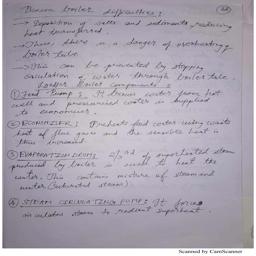 Benson boiler difficulties:
→ Deposition of salts and sediments, reducing
heat transferred.
→ Thus, there is a danger of overheating
boiler tube.
→ This can be prevented by stopping
circulation of water through boiler tube.
Loeffler Boiler Components :
① Feed Pump : It draws water from hot
well and pressurized water is supplied
to economiser.
② ECONOMISER : Preheats feed water using waste
heat of flue gases and the sensible heat is
thus increased.
③ EVAPORATING DRUM : 2/3rd of superheated steam
produced by boiler is used to heat the
water. This contains mixture of steam and
water (saturated steam).
④ STEAM CIRCULATING PUMP : It forces
steam to radiant superheat.
Scanned by CamScanner